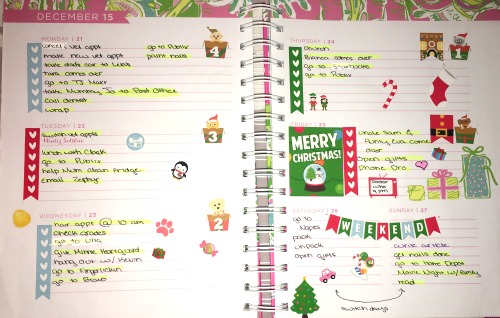 DECEMBER 15
MONDAY | 21
cancel vet appt
make new vet appt
take dad's car to
Tara comes over
go to TJ Maxx
take Mommy, Jo to Post Office
call dentist
wrap
go to Publix
paint nails
4
TUESDAY | 22
vet appt
lunch with
go to Publix
help Mom clean fridge
email Zephyr
3
WEDNESDAY | 23
hair appt @ 10 am
check grades
go to Ulta
give Minnie Heartguard
hang out w/ Kevin
go to
go to
2
THURSDAY | 24
church
Bianca comes over
go to Starbucks
go to Publix
1
FRIDAY | 25
MERRY
CHRISTMAS!
Uncle Sam &
Eva come
over
open gifts
Phone
Dinner
with
SATURDAY | 26
go to
Naples
pack
unpack
open gifts
WEEKEND
SUNDAY | 27
write article
get nails done
go to Home Depot
Movie Night w/ family
read
switch days